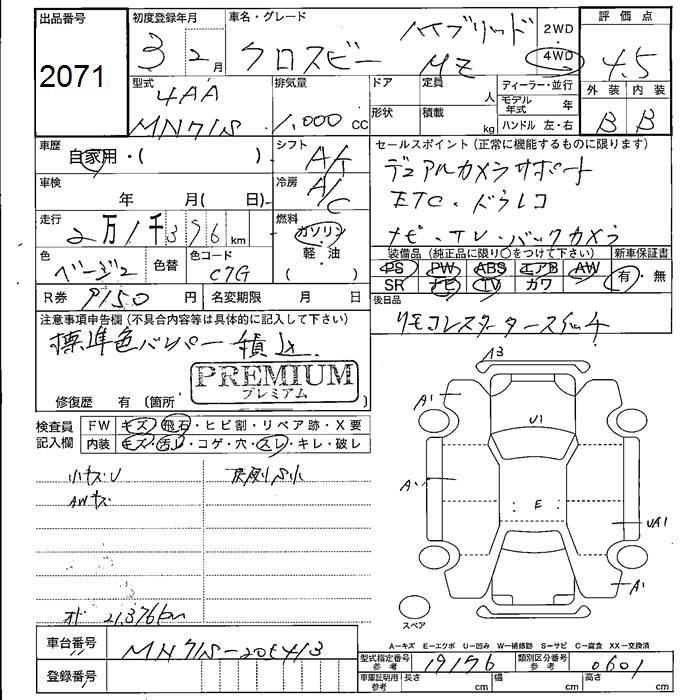 出品番号 初度登録年月 車名・グレード 評価点
2071 3 2月 クロスビー ハイブリッド MZ 2WD 4WD 4.5
型式 排気量 ドア 定員 人 ディーラー・並行 外装 内装
4AA MN71S 1,000 cc 形状 積載 kg モデル年式 年 ハンドル 左・右 B B
車歴 自家用・( ) シフト A/T セールスポイント(正常に機能するものに限ります)
デュアルカメラサポート
車検 年 月( 日) 冷房 A/C ETC・ドラレコ
走行 2万1千376km 燃料 ガソリン 軽・油 ( ) ナビ・TV・バックカメラ
色 ベージュ 色替 色コード C7G 装備品(純正品に限り○をつけて下さい) 新車保証書
PS PW ABS エアB AW 有・無
SR ナビ TV カワ
R券 円 名変期限 月 日 後日品
注意事項申告欄(不具合内容等は具体的に記入して下さい) リモコンスタータースイッチ
標準色バンパー積込
PREMIUM
プレミアム
修復歴 有 (箇所 )
検査員記入欄 FW キズ・飛石・ヒビ割・リペア跡・X要
内装 キズ・汚レ・コゲ・穴・スレ・キレ・破レ
A3
A1 U1
小キズU
AWキズ A1 E UA1
A1
スペア
オド 21,376km
A=キズ E=エクボ U=凹み W=補修跡 S=サビ C=腐食 XX=交換済
車台番号 MN71S-205413 型式指定番号参考 19176 類別区分番号参考 0601
登録番号 車庫証明用参考 長さ cm 幅 cm 高さ cm